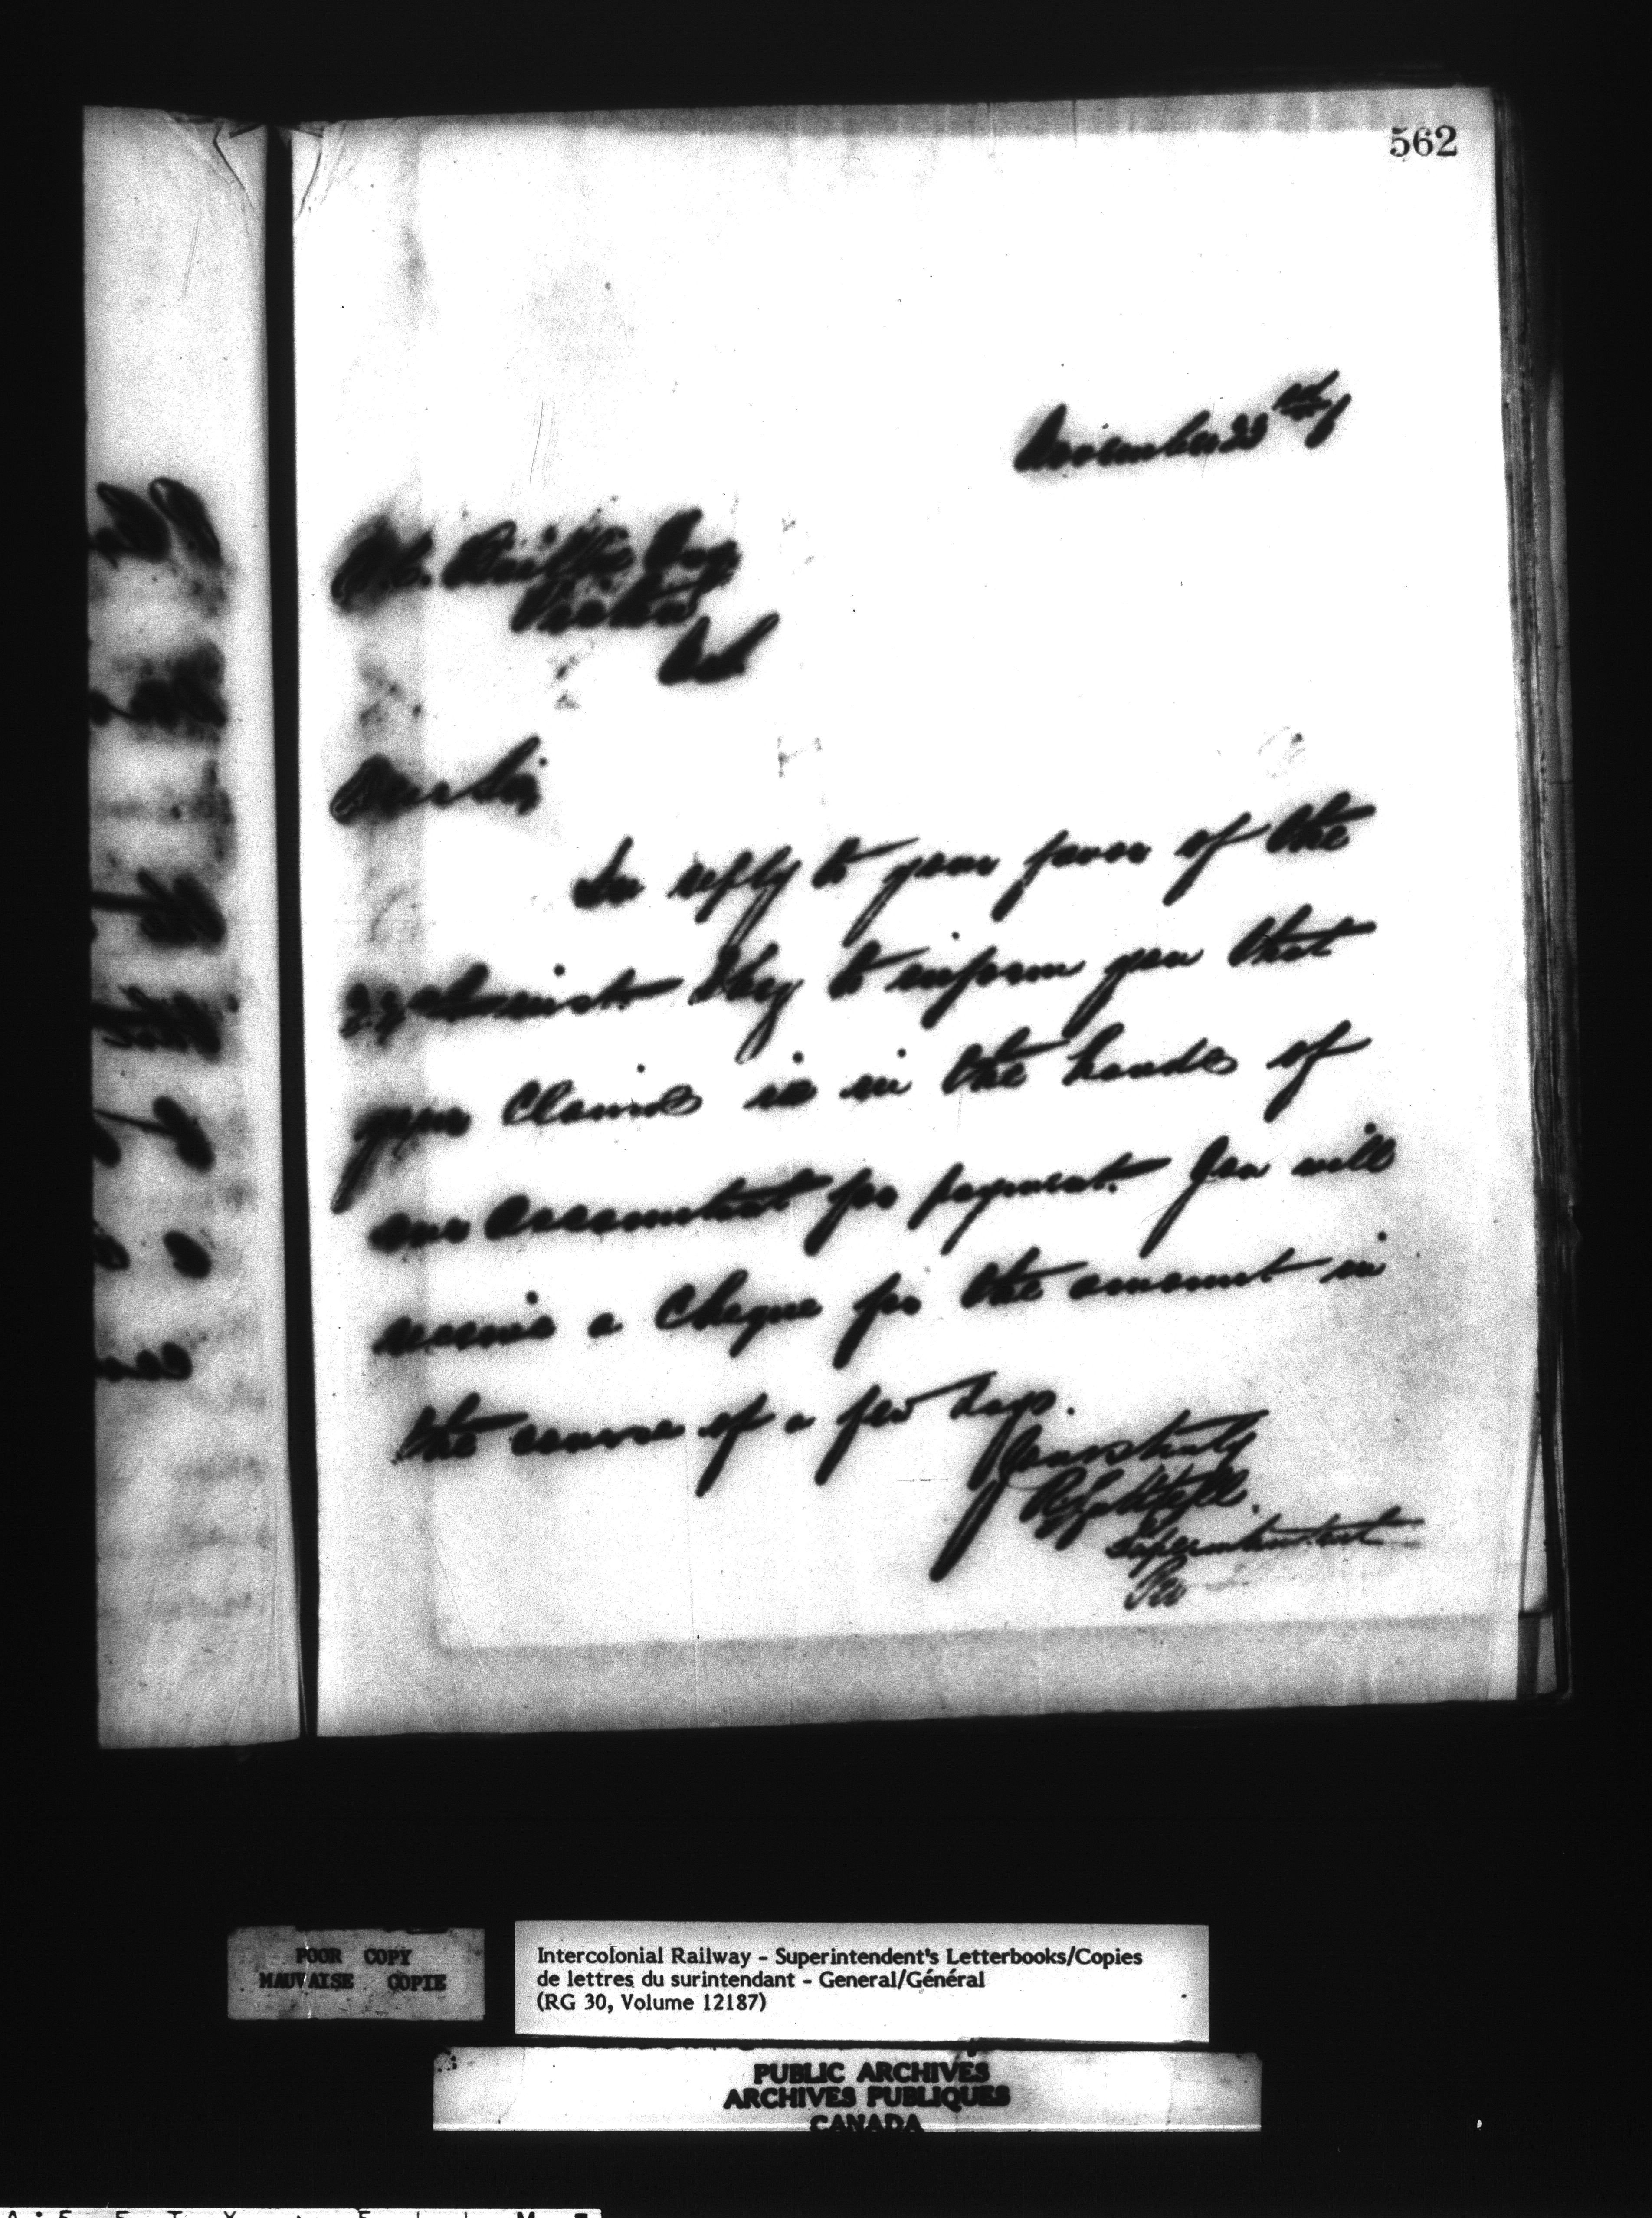 562
November 23
Esq
Dear Sir,
In reply to your favor of the
22nd inst. I beg to inform you that
your Claims is in the hands of
our Accountant for payment. You will
receive a Cheque for the amount in
the course of a few days.
Yours truly
Superintendent
Per
POOR COPY
MAUVAISE COPIE
Intercolonial Railway - Superintendent's Letterbooks/Copies
de lettres du surintendant - General/Général
(RG 30, Volume 12187)
PUBLIC ARCHIVES
ARCHIVES PUBLIQUES
CANADA